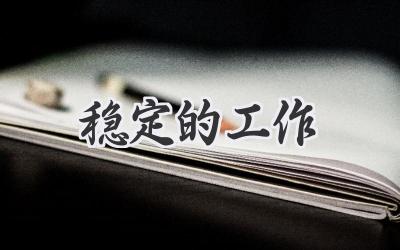 稳定的工作